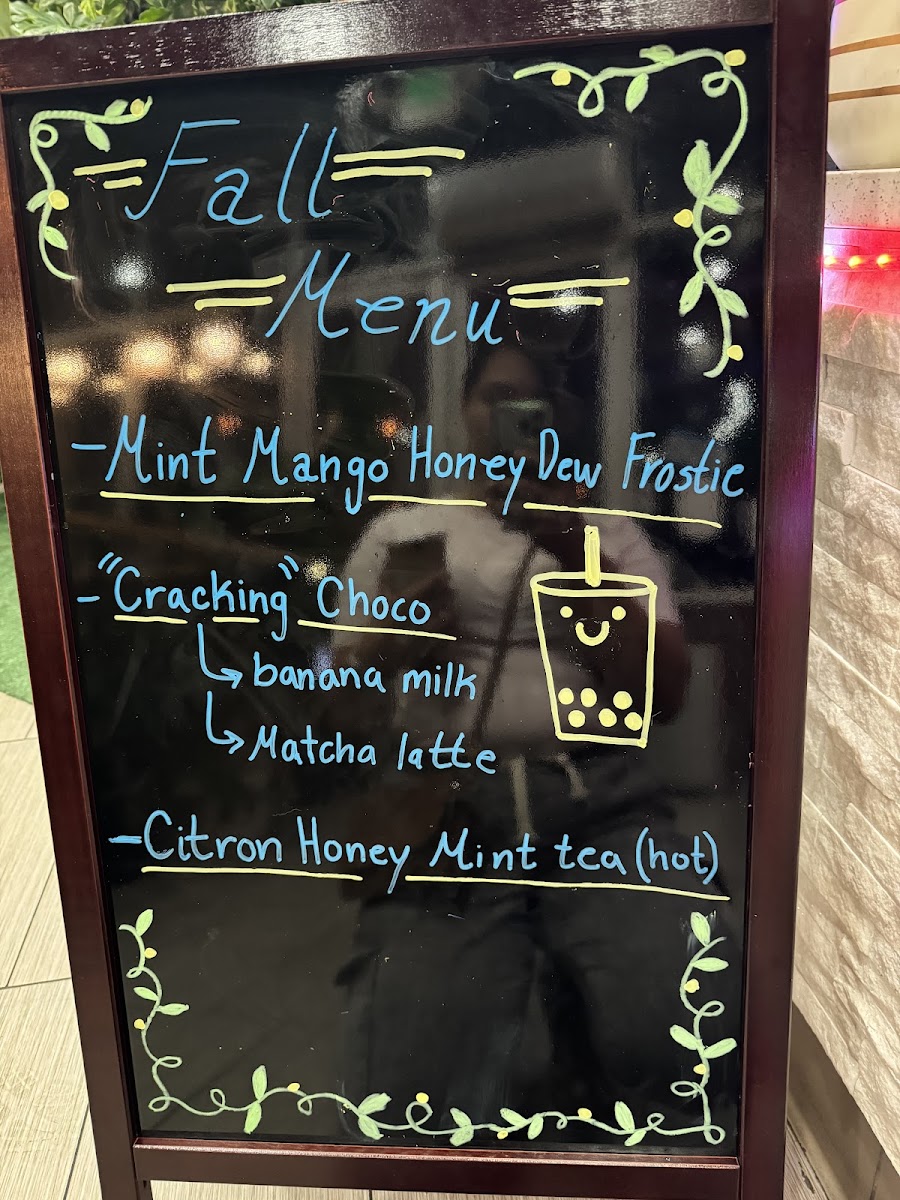 Fall
Menu
- Mint Mango Honey Dew Frostie
- "Cracking" Choco
↳ banana milk
↳ Matcha latte
- Citron Honey Mint tea (hot)